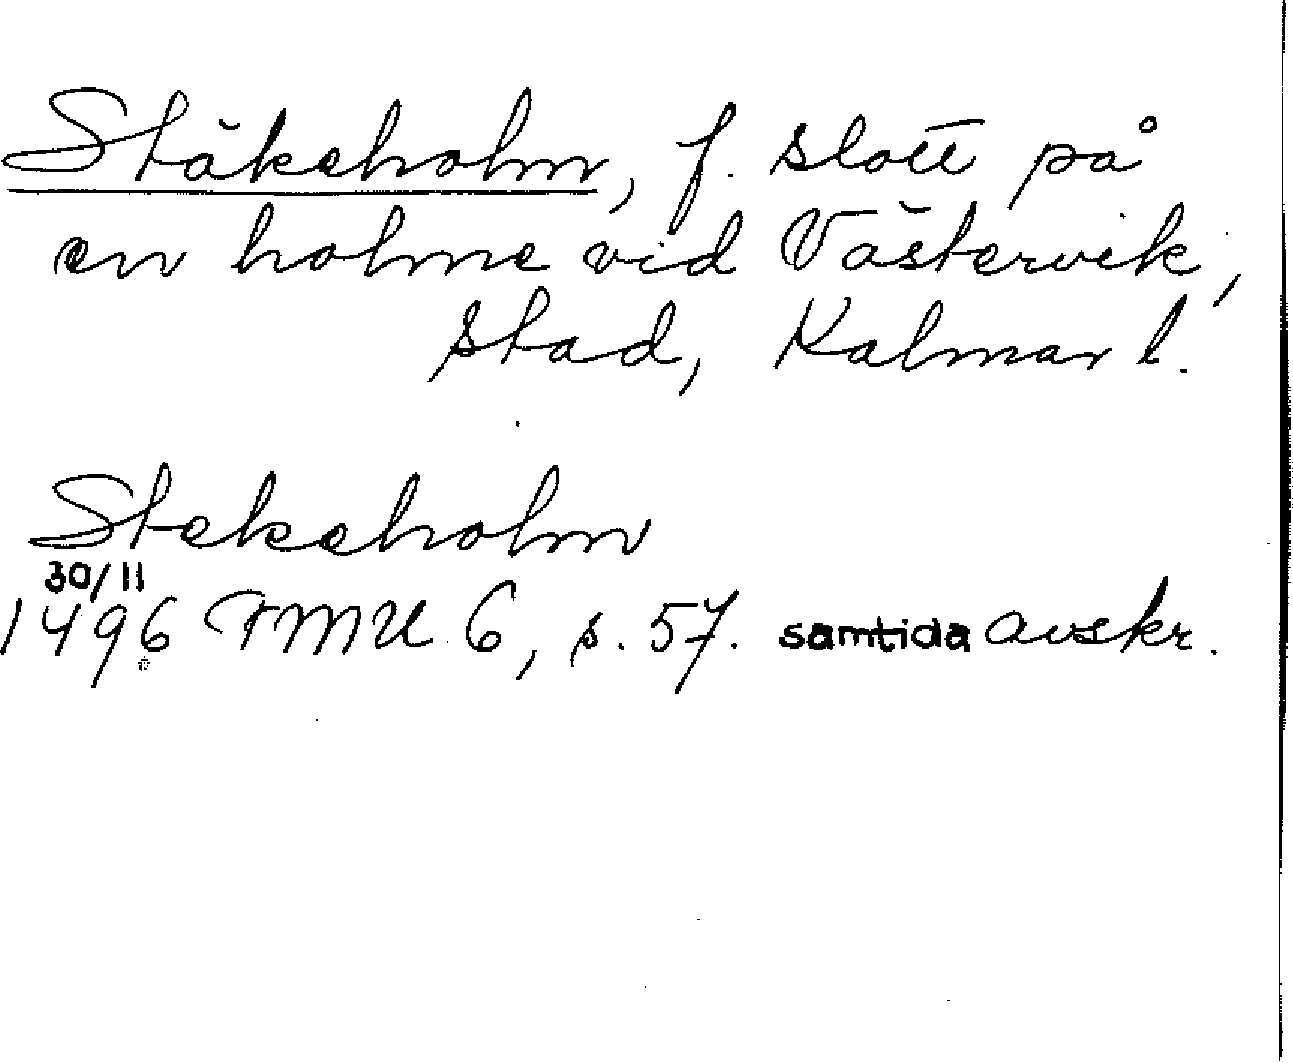 Stäkeholm, f. slott på
en holme vid Västervik,
stad, Kalmar l.
Stekeholm
30/11
1496 FMU 6, s. 57. samtida avskr.